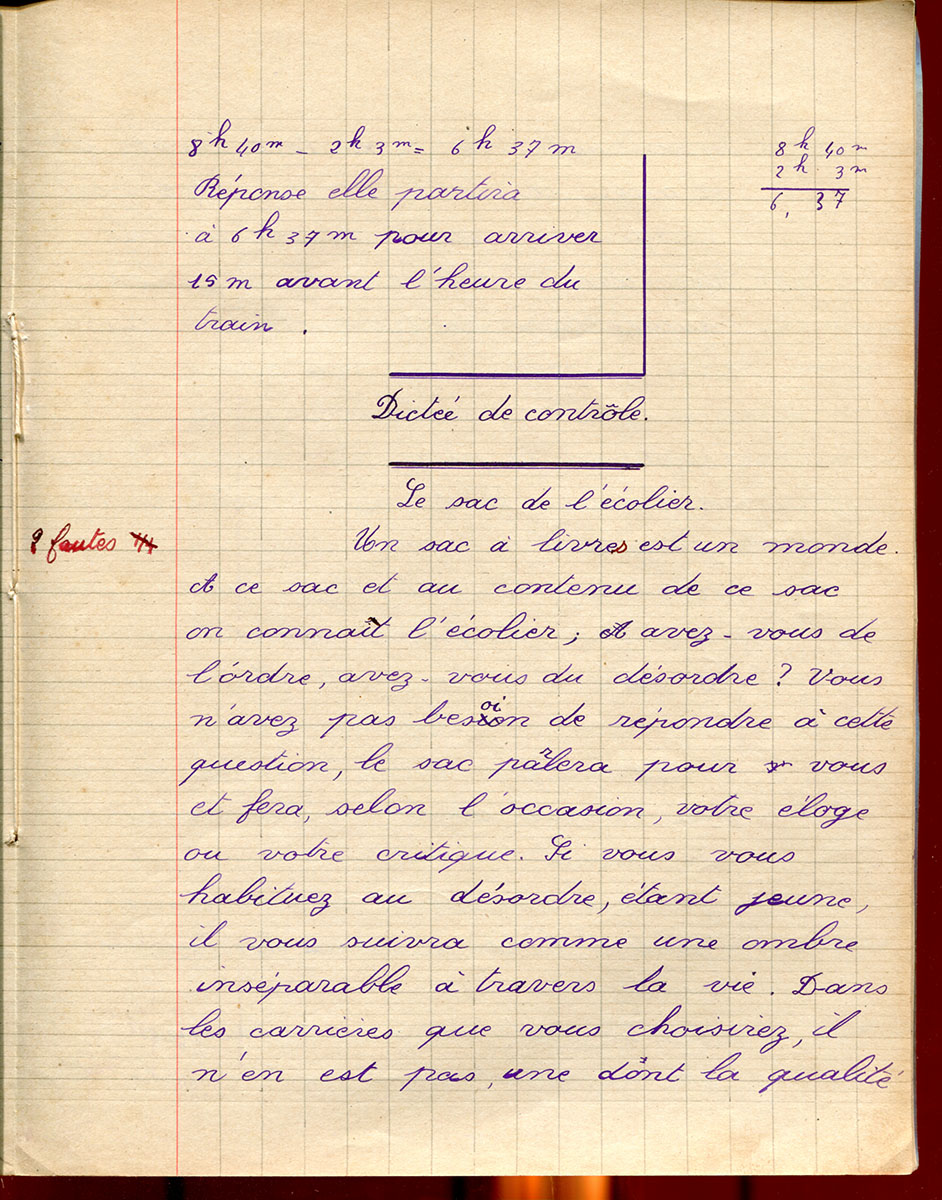 8h 40m - 2h 3m = 6h 37m
8h 40m
2h 3m
6, 37
Réponse elle partira
à 6h 37m pour arriver
15m avant l'heure du
train.
Dictée de contrôle.
Le sac de l'écolier.
fautes
Un sac à livres est un monde.
A ce sac et au contenu de ce sac
on connaît l'écolier; A avez-vous de
l'ordre, avez-vous du désordre? Vous
n'avez pas besoin de répondre à cette
question, le sac parlera pour vous
et fera, selon l'occasion, votre éloge
ou votre critique. Si vous vous
habituez au désordre, étant jeune,
il vous suivra comme une ombre
inséparable à travers la vie. Dans
les carrières que vous choisirez, il
n'en est pas, une dont la qualité